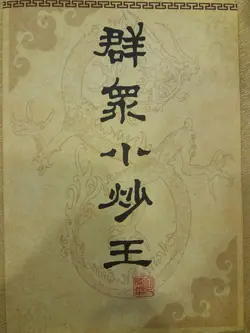 群眾小炒王